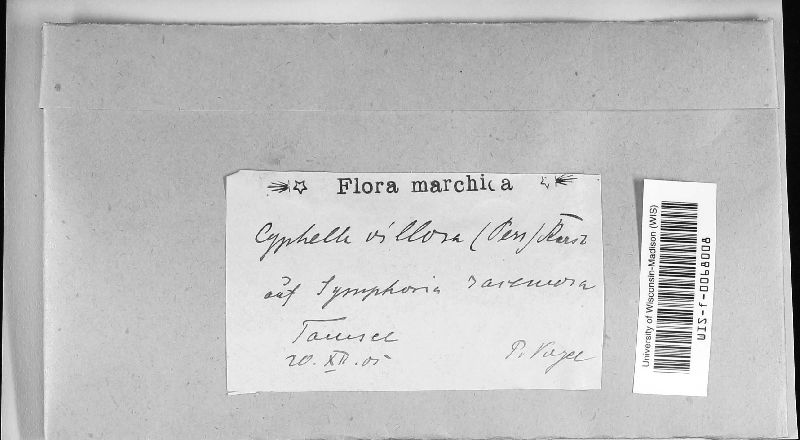 Flora marchica
Cyphella villosa (Pers) Karst
auf Symphoria racemosa
Tamsel
20. XII. 05 P. Vogel
University of Wisconsin-Madison (WIS)
WIS-f-0068008